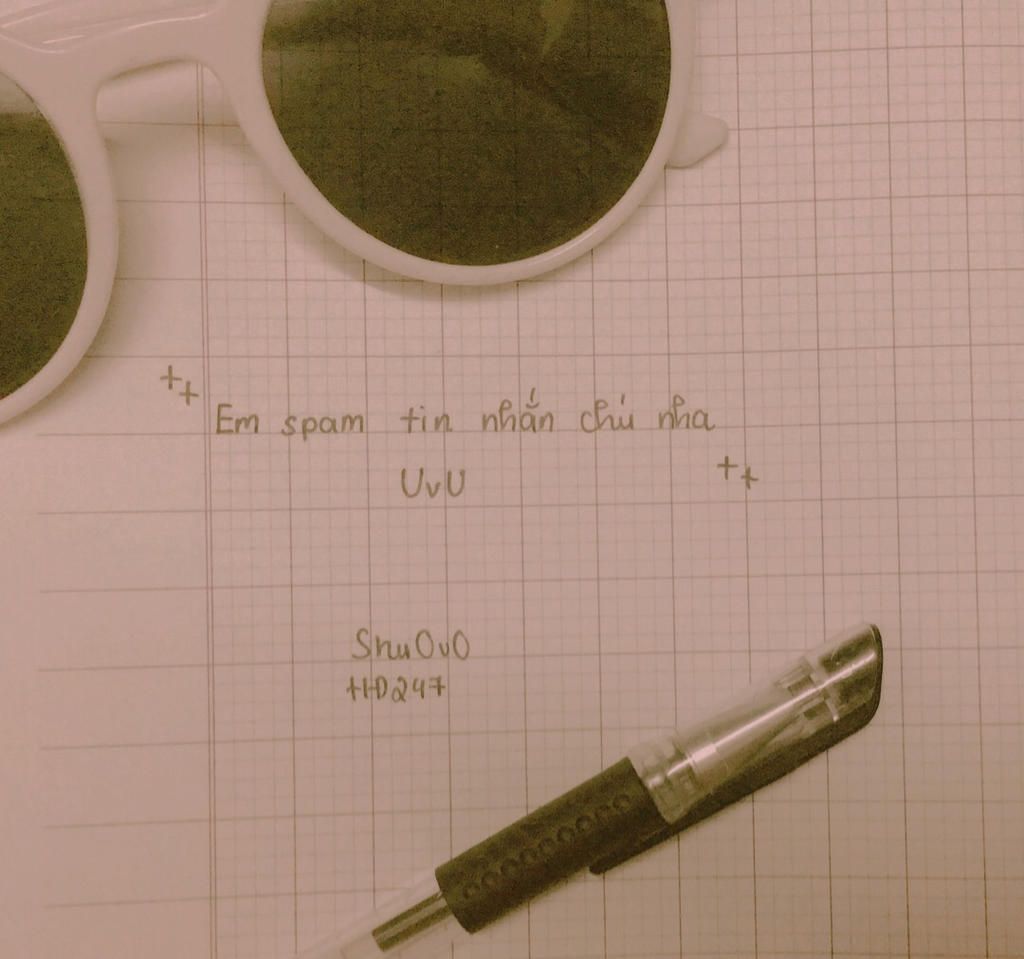 Em spam tin nhắn chú nha
UvU
ShuOvO
HD247